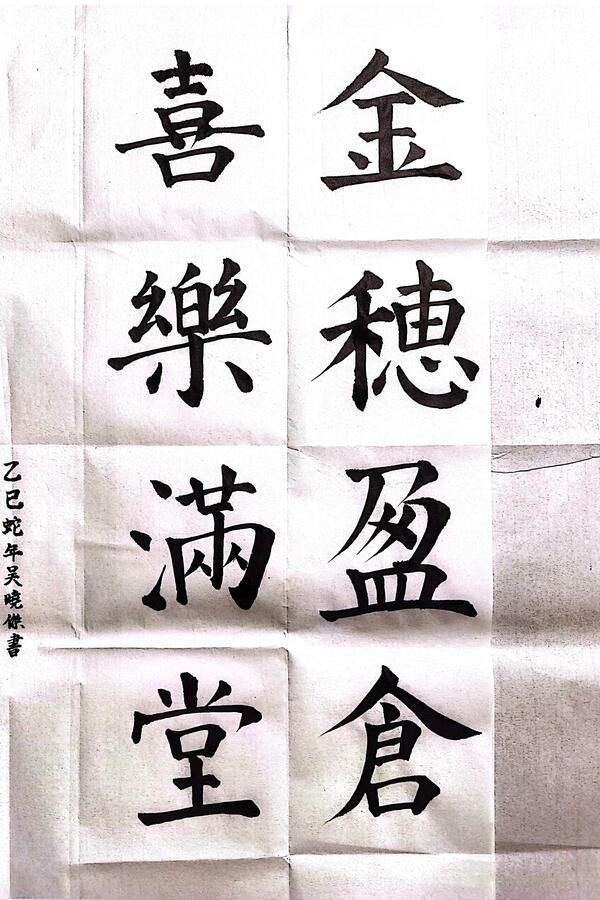 金穂盈倉
喜樂滿堂
乙巳蛇年吴曉傑書